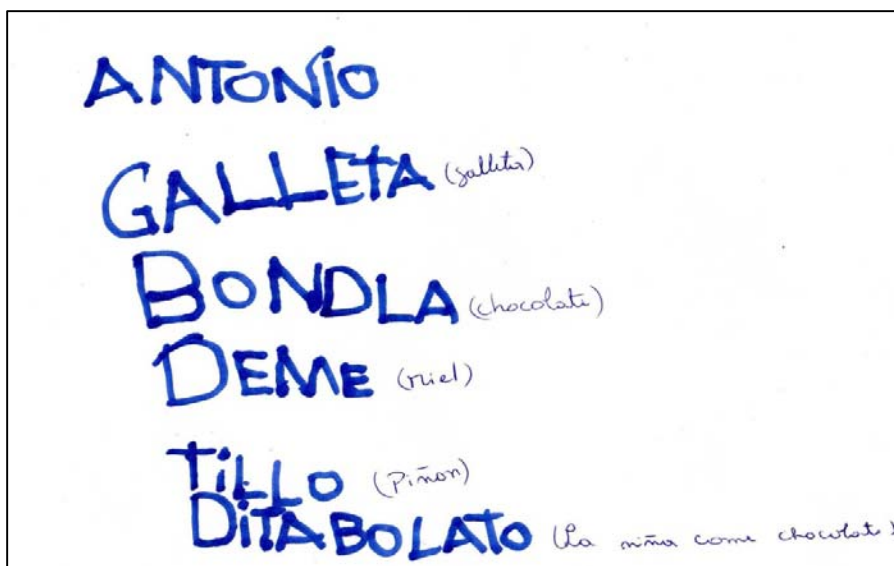 ANTONIO
GALLETA (galleta)
BONDLA (chocolate)
DEME (miel)
TiLLO (Piñon)
DiTABOLATO (La niña come chocolate)